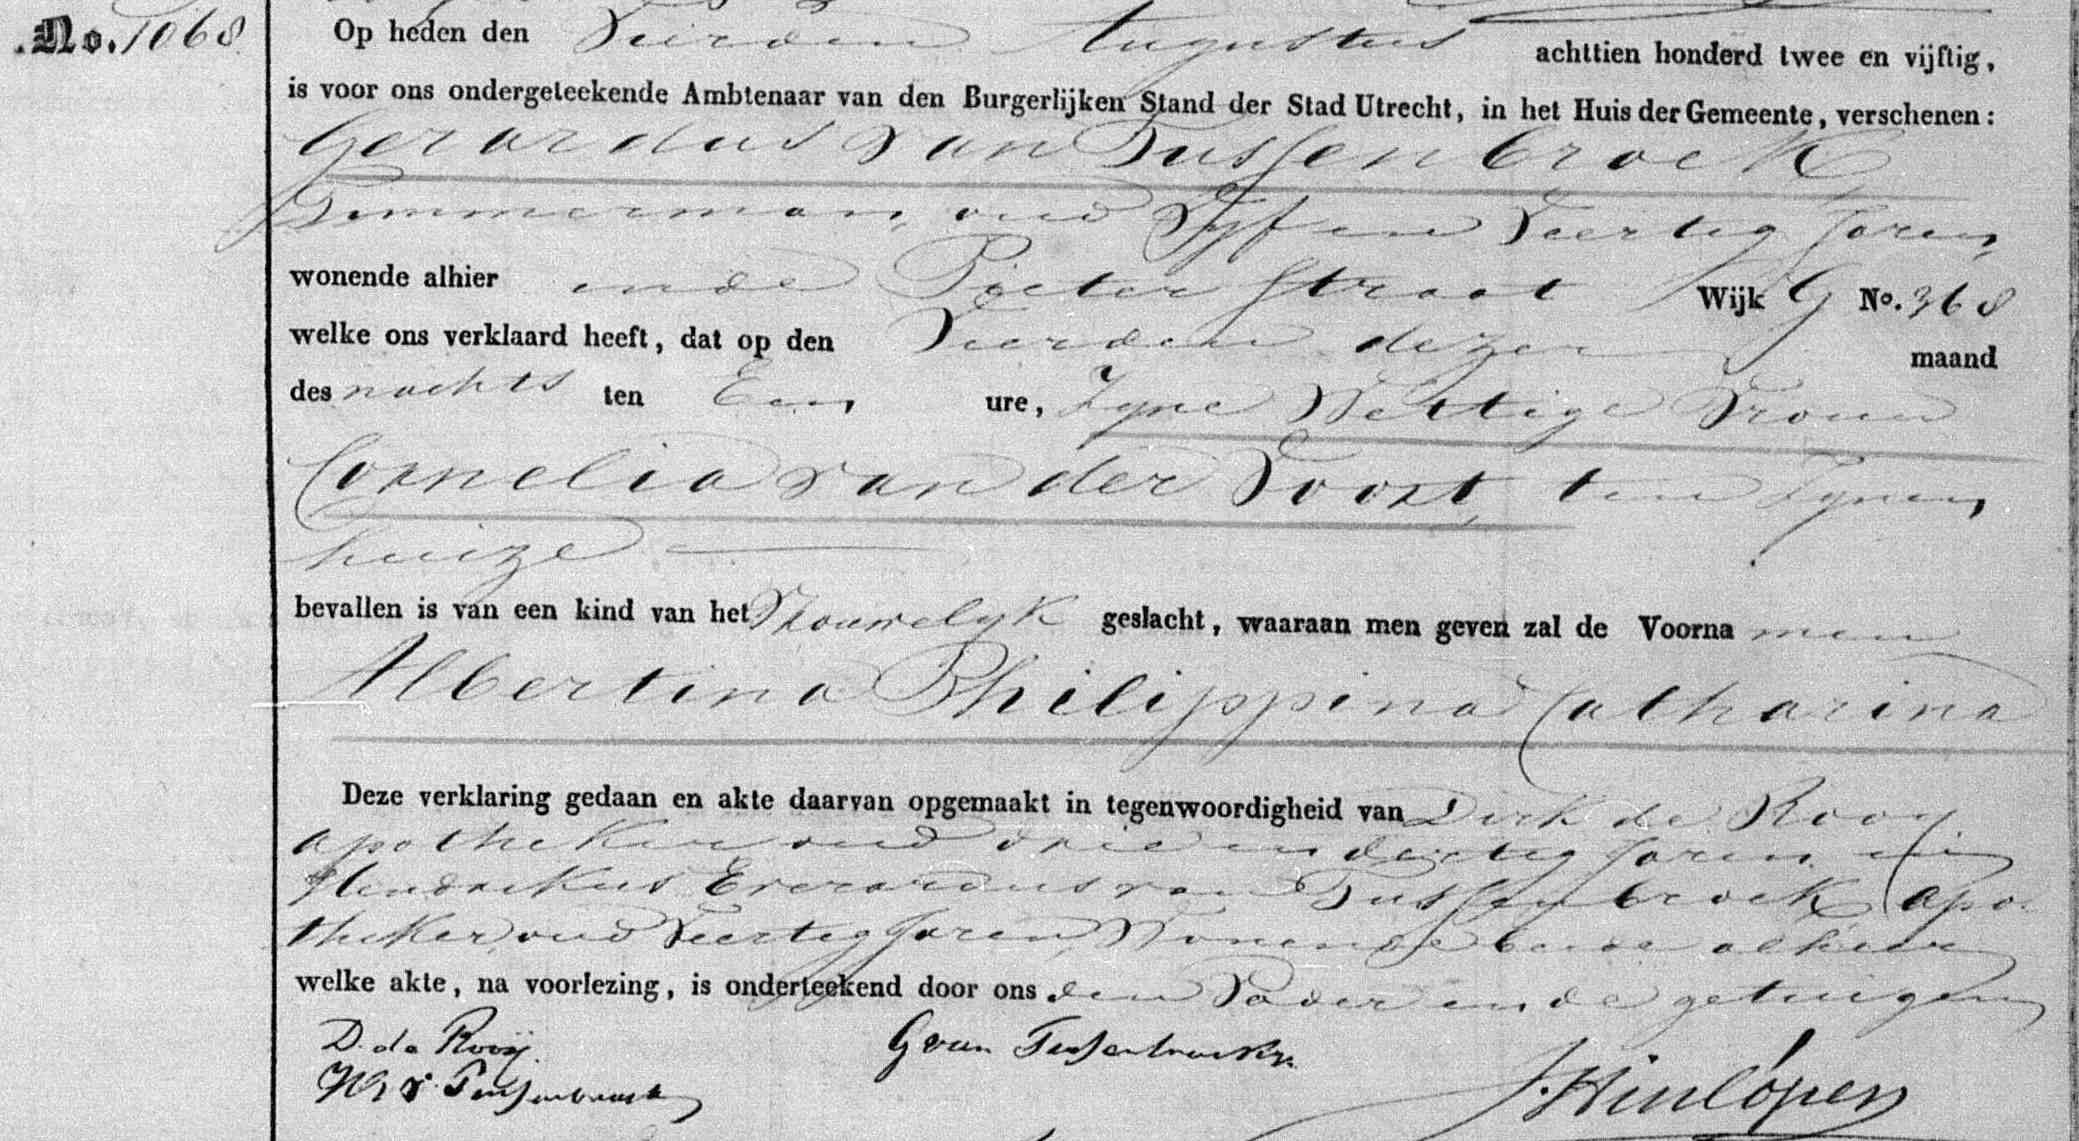 No. 1068 Op heden den Vierden Augustus achttien honderd twee en vijftig,
is voor ons ondergeteekende Ambtenaar van den Burgerlijken Stand der Stad Utrecht, in het Huis der Gemeente, verschenen:
Gerardus van Tussenbroek
Timmerman, oud Vyf en Veertig Jaren,
wonende alhier in de Pieter Straat Wijk G No. 368
welke ons verklaard heeft, dat op den Vierden dezer maand
des nachts ten Een ure, Zyne Wettige Vrouw
Cornelia van der Voort, ten Zynen
huize
bevallen is van een kind van het Vrouwelyk geslacht, waaraan men geven zal de Voorna men
Albertina Philippina Catharina
Deze verklaring gedaan en akte daarvan opgemaakt in tegenwoordigheid van Dirk de Rooy
apotheker oud drie en dertig Jaren en
Hendrikus Everardus van Tussenbroek apo
theker, oud Veertig Jaren, Wonende beide alhier
welke akte, na voorlezing, is onderteekend door ons den Vader en de getuigen
D. de Rooij. G van Tussenbroek
H E v. Tussenbroek
J. Hinlópen